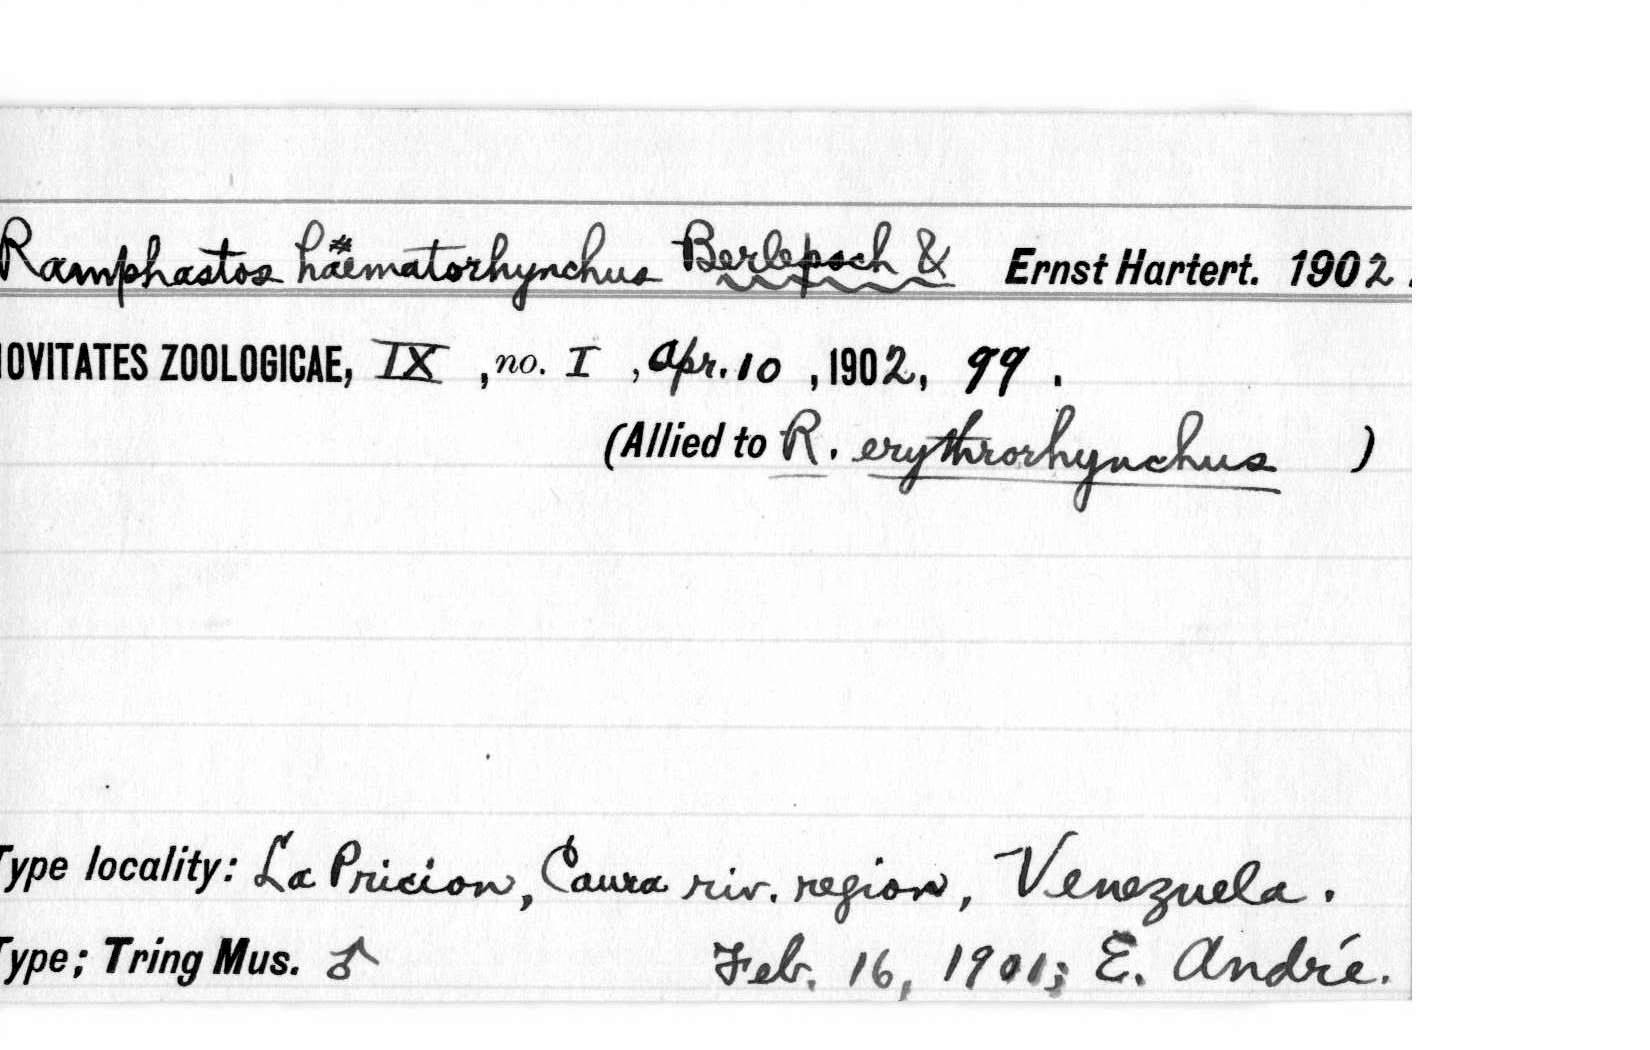 Ramphastos haematorhynchus Berlepsch & Ernst Hartert. 1902.
OVITATES ZOOLOGICAE, IX, no. I, Apr. 10, 1902, 99.
(Allied to R. erythrorhynchus )
Type locality: La Pricion, Caura riv. region, Venezuela.
Type; Tring Mus. ♂ Feb. 16, 1901; E. André.